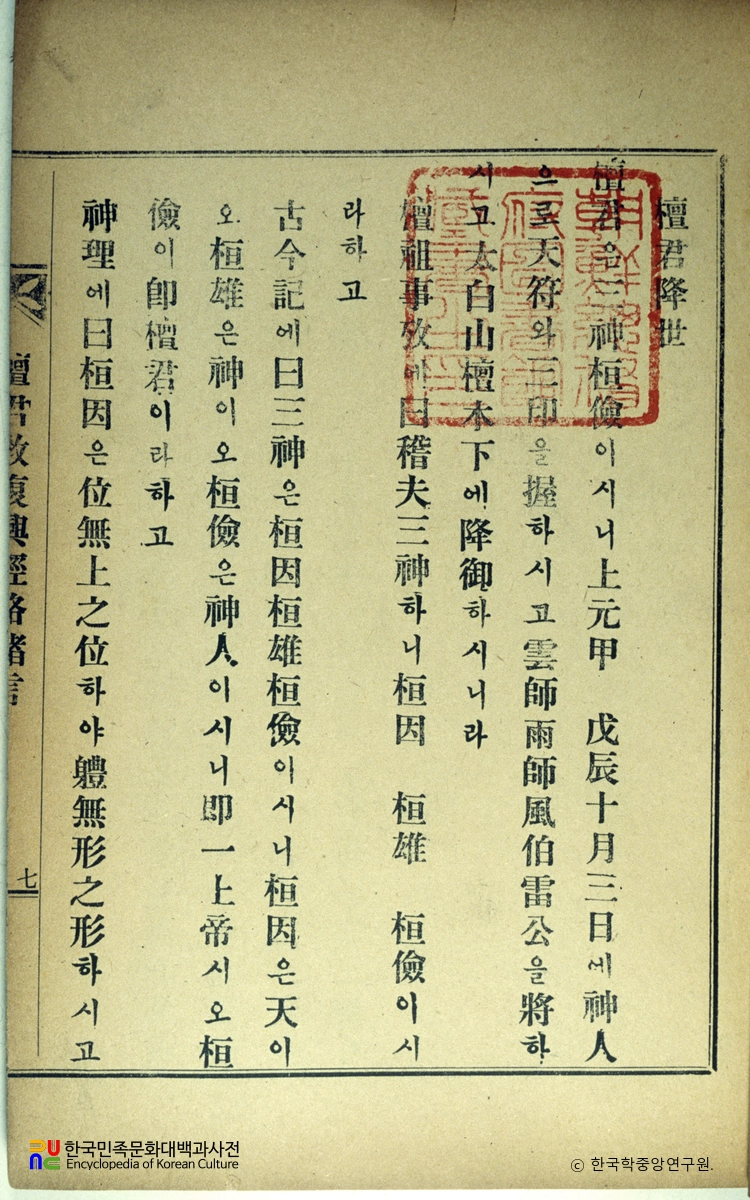 檀君降世
檀君은三神桓儉이시니上元甲 戊辰十月三日에神人
으로天符와三印을握하시고雲師雨師風伯雷公을將하
시고太白山檀木下에降御하시니라
檀祖事攷에曰稽夫三神하니桓因 桓雄 桓儉이시
라하고
古今記에曰三神은桓因桓雄桓儉이시니桓因은天이
오桓雄은神이오桓儉은神人이시니即一上帝시오桓
儉이卽檀君이라하고
神理에曰桓因은位無上之位하야軆無形之形하시고
七
한국민족문화대백과사전
Encyclopedia of Korean Culture
© 한국학중앙연구원.